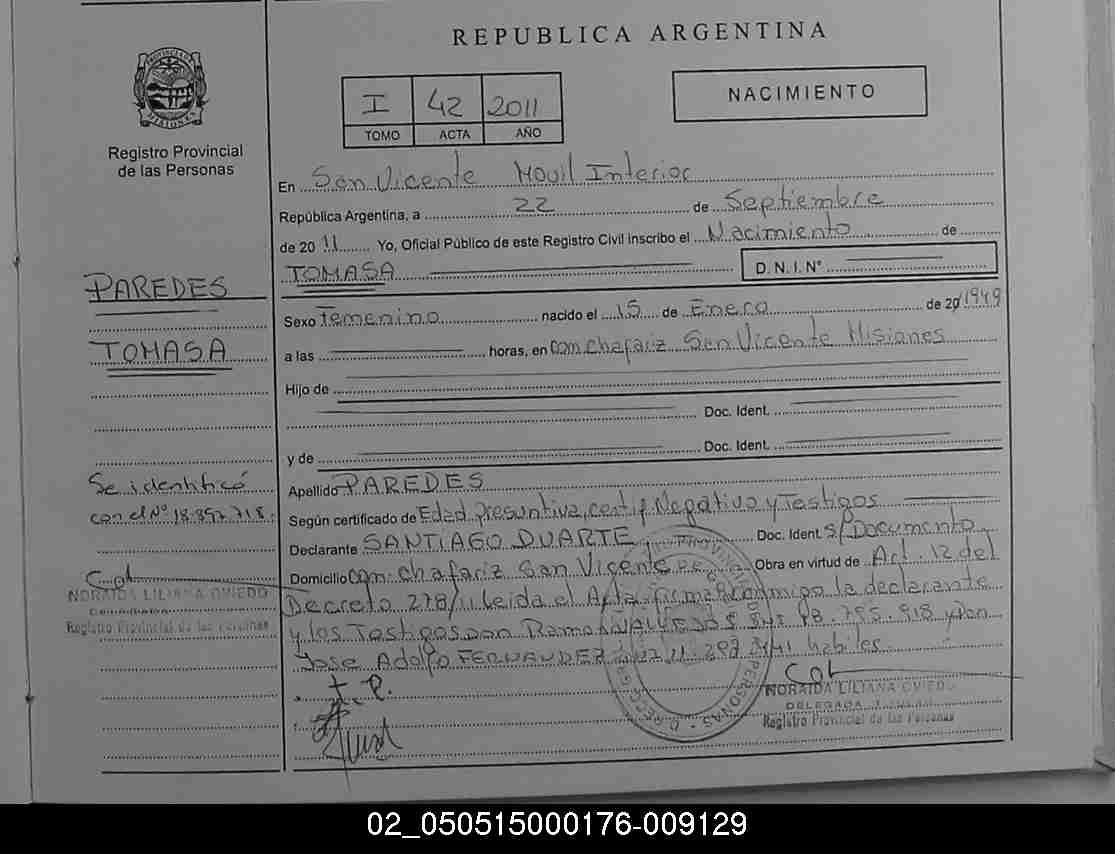 REPUBLICA ARGENTINA
PROVINCIA DE MISIONES
Registro Provincial
de las Personas
I 42 2011
TOMO ACTA AÑO
NACIMIENTO
En San Vicente Movil Interior
República Argentina, a 22 de Septiembre
de 20 11 Yo, Oficial Público de este Registro Civil inscribo el Nacimiento de
TOMASA D. N. I. N°
Sexo Femenino nacido el 15 de Enero de 20/1949
a las horas, en Com chafariz San Vicente Misiones
Hijo de
Doc. Ident.
y de Doc. Ident.
Apellido PAREDES
Según certificado de Edad presuntiva, certif Negativo y Testigos
Declarante SANTIAGO DUARTE Doc. Ident. S/Documento
Domicilio Com. chafariz San Vicente Obra en virtud de Art. 12 del
Decreto 278/11 Leida el Acta firman conmigo la declarante
y los Testigos don Ramon 795.918 y Don
Jose Adolfo FERNANDEZ habiles.
T. P.
NORAIDA LILIANA OVIEDO
DELEGADA
Registro Provincial de las Personas
PAREDES
TOMASA
Se identificó
con el N° 18.852.718.
NORAIDA LILIANA OVIEDO
Registro Provincial de las Personas
02_050515000176-009129